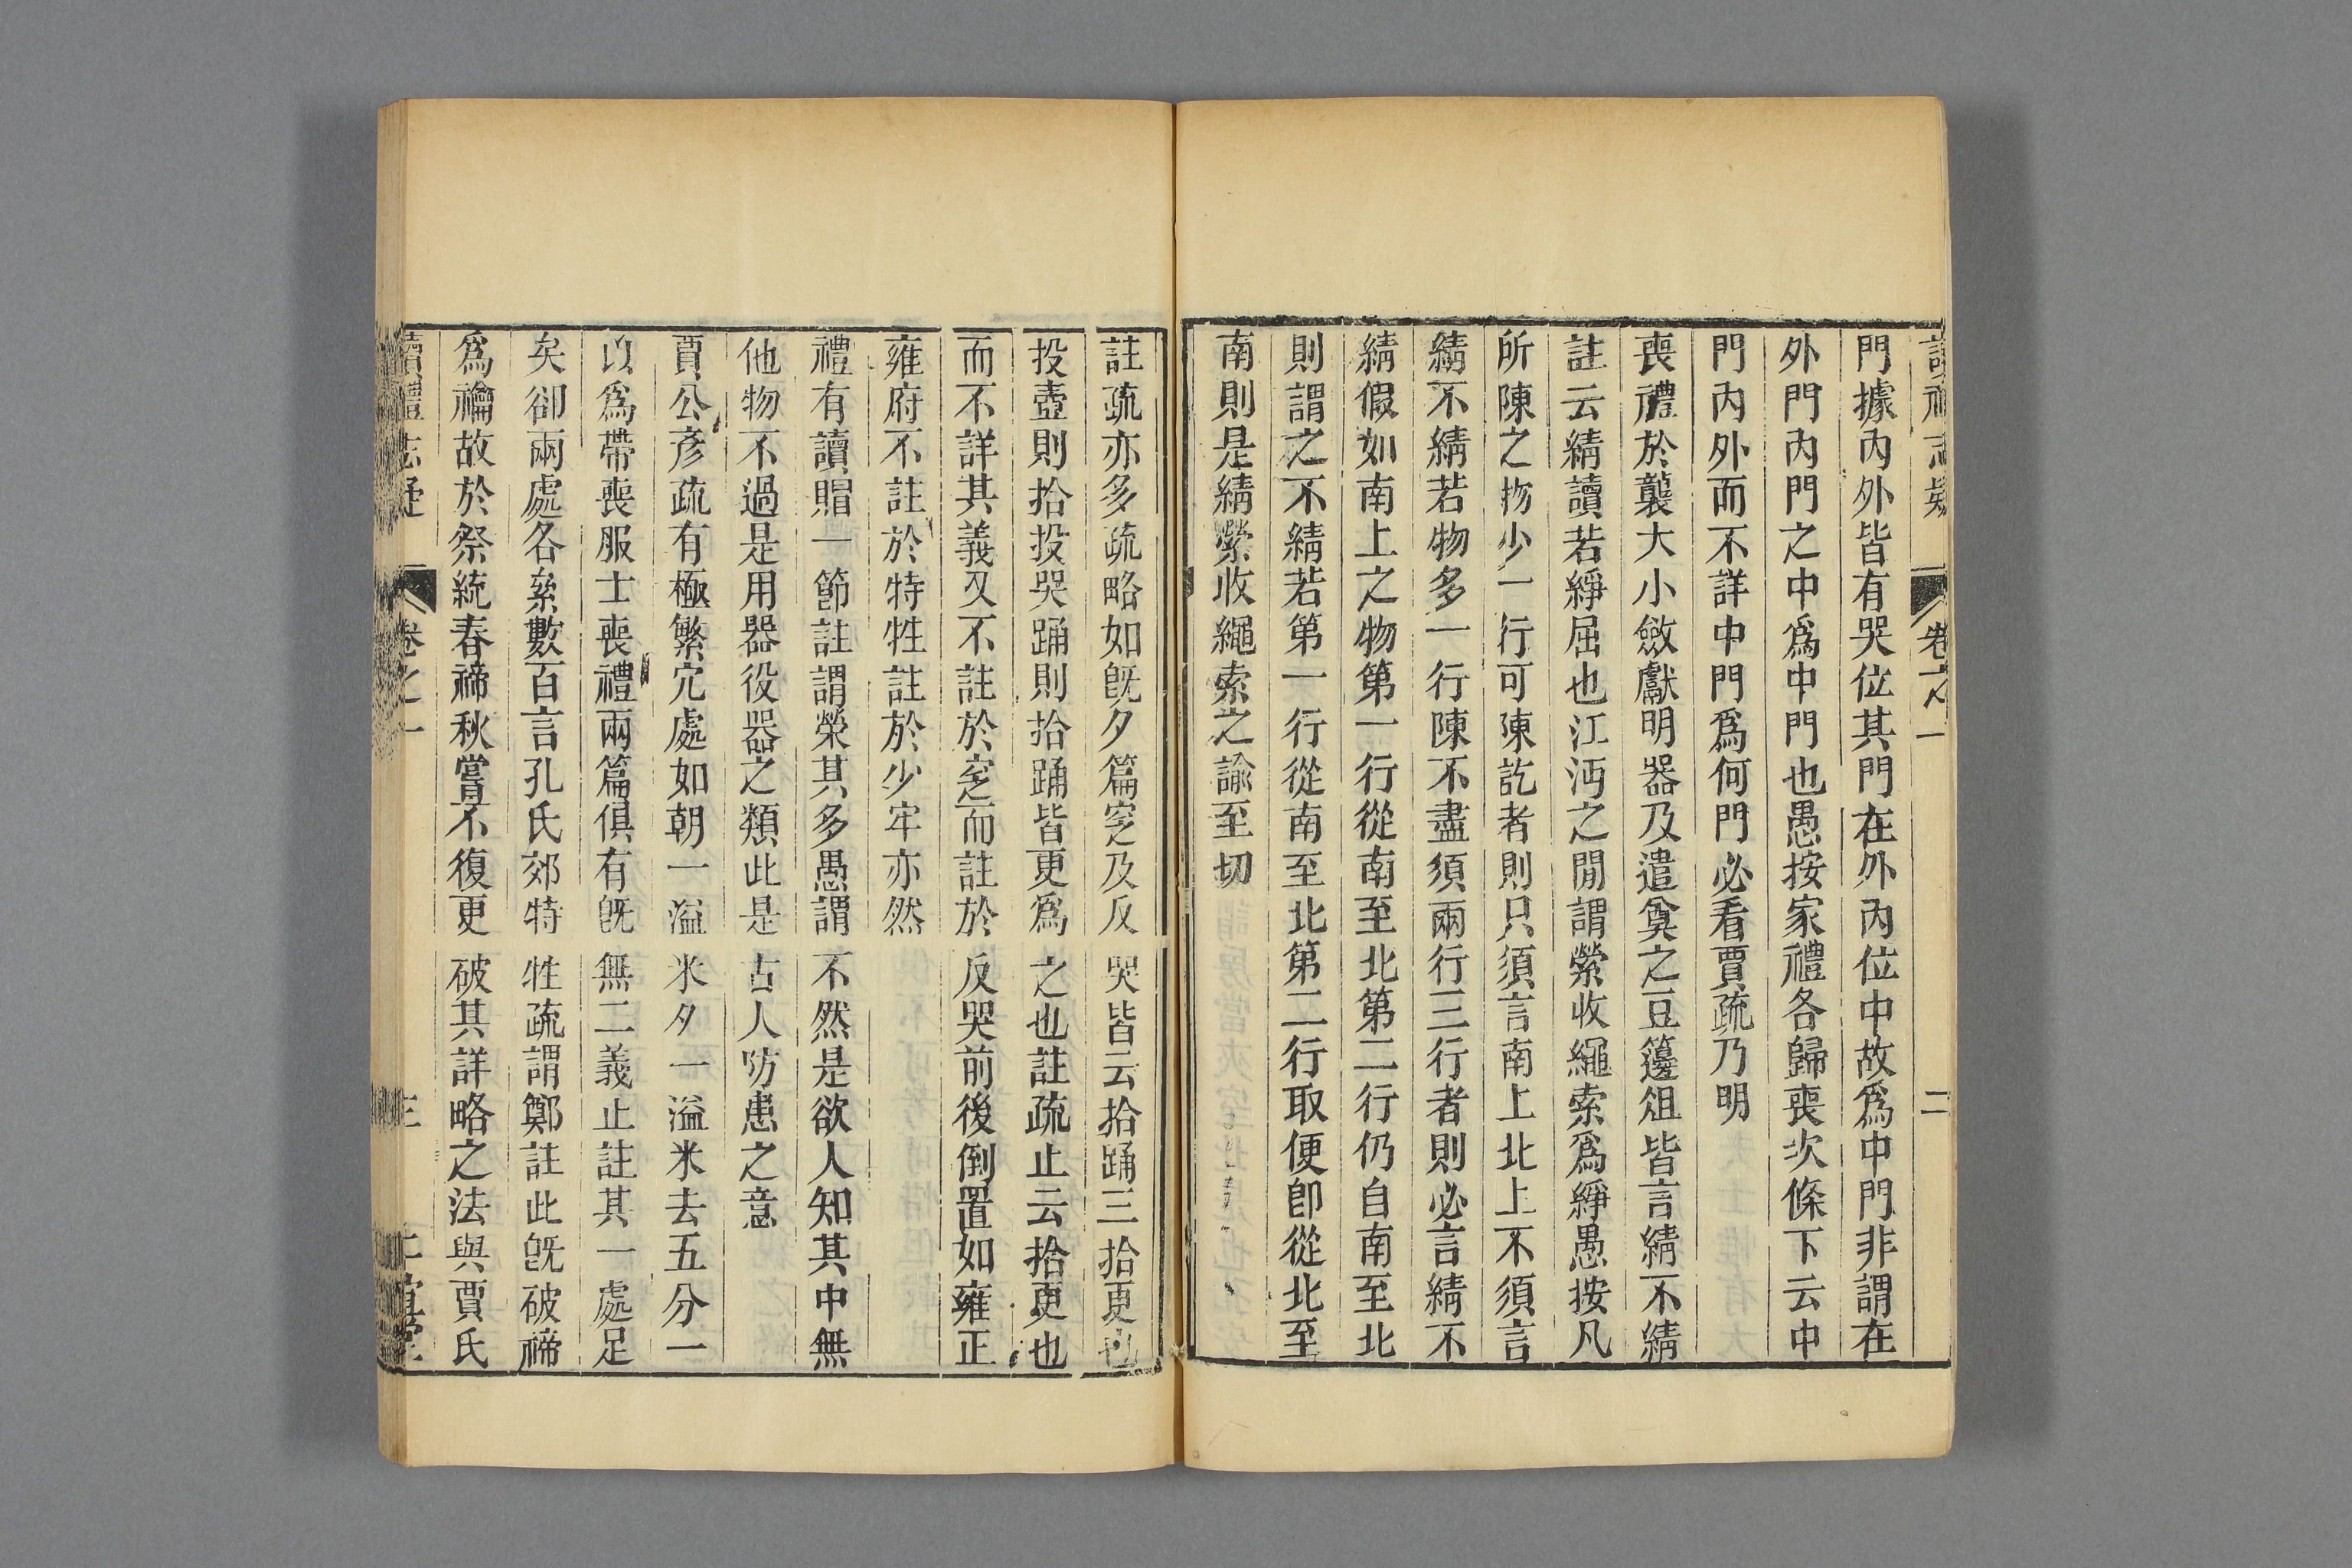 讀禮志疑 卷之一 二
門據內外皆有哭位其門在外內位中故爲中門非謂在
外門內門之中爲中門也愚按家禮各歸喪次條下云中
門內外而不詳中門爲何門必看賈疏乃明
喪禮於襲大小斂獻明器及遣奠之豆籩俎皆言綪不綪
註云綪讀若絣屈也江沔之閒謂縈收繩索爲絣愚按凡
所陳之物少一行可陳訖者則只須言南上北上不須言
綪不綪若物多一行陳不盡須兩行三行者則必言綪不
綪假如南上之物第一行從南至北第二行仍自南至北
則謂之不綪若第一行從南至北第二行取便卽從北至
南則是綪縈收繩索之諭至切
註疏亦多疏略如旣夕篇窆及反哭皆云拾踊三拾更也
投壺則拾投哭踊則拾踊皆更爲之也註疏止云拾更也
而不詳其義又不註於窆而註於反哭前後倒置如雍正
雍府不註於特牲註於少牢亦然
禮有讀賵一節註謂榮其多愚謂不然是欲人知其中無
他物不過是用器役器之類此是古人防患之意
賈公彥疏有極繁宂處如朝一溢米夕一溢米去五分一
以爲帶喪服士喪禮兩篇俱有旣無二義止註其一處足
矣卻兩處各絫數百言孔氏郊特牲疏謂鄭註此旣破禘
爲禴故於祭統春禘秋嘗不復更破其詳略之法與賈氏
讀禮志疑 卷之一 三 正誼堂